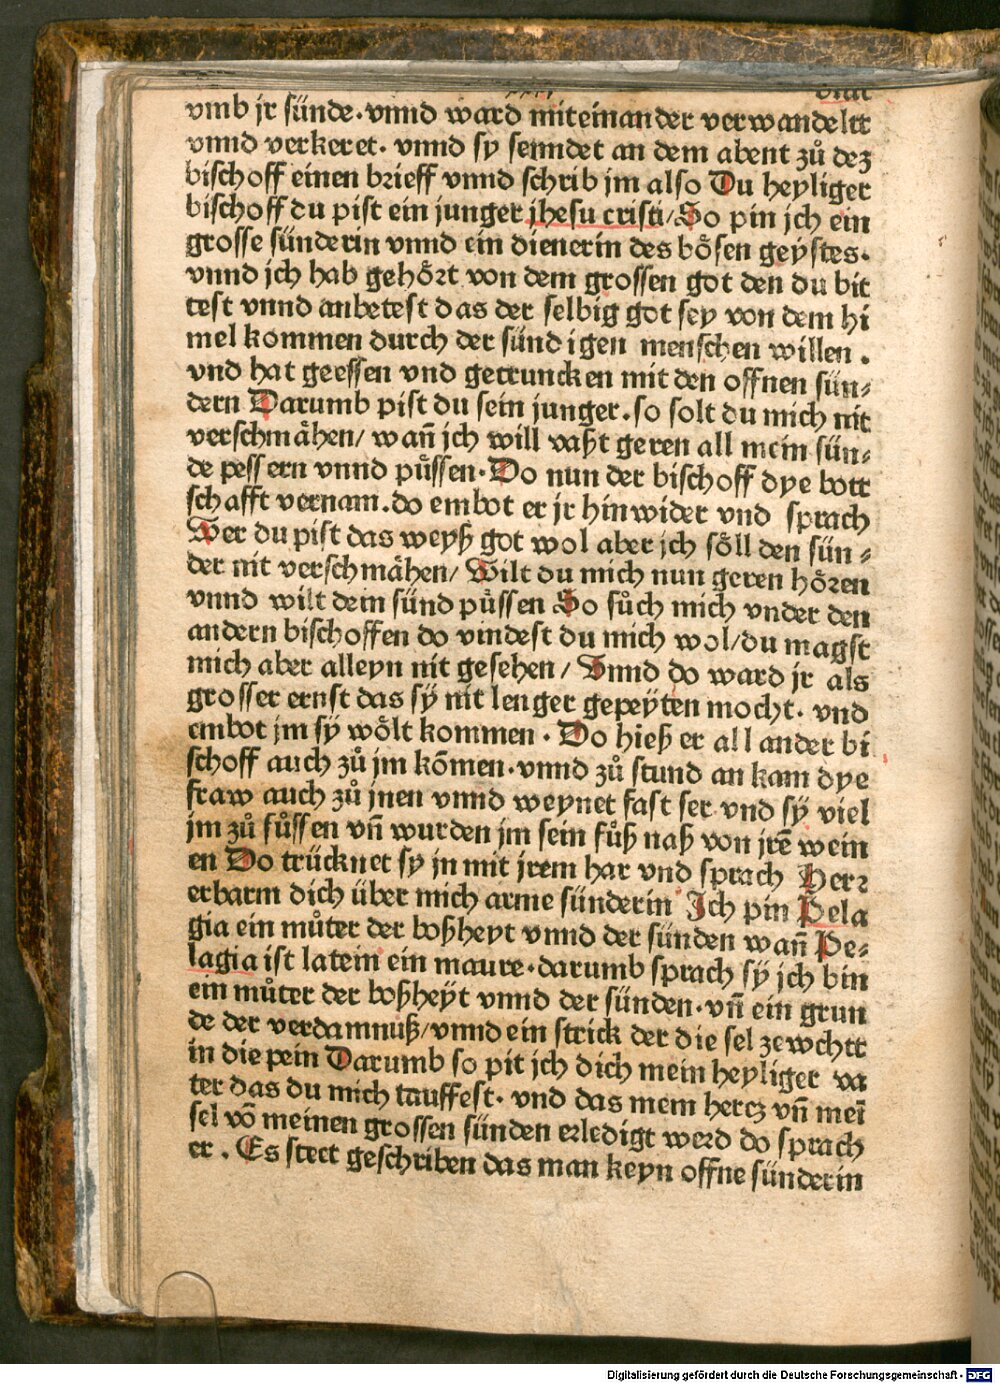 vmb jr sünde. vnnd ward miteinander verwandeltt
vnnd verkeret. vnnd sy senndet an dem abent zů dez
bischoff einen brieff vnnd schrib jm also Du heyliger
bischoff du pist ein junger jhesu cristi/ So pin jch ein
grosse sünderin vnnd ein dienerin des bösen geystes.
vnnd jch hab gehört von dem grossen got den du bit
test vnnd anbetest das der selbig got sey von dem hi
mel kommen durch der sündigen menschen willen.
vnd hat geessen vnd getruncken mit den offnen sün⸗
dern Darumb pist du sein junger. so solt du mich nit
verschmähen/ wañ jch will vaßt geren all mein sün⸗
de pessern vnnd püssen. Do nun der bischoff dye bott
schafft vernam. do embot er jr hinwider vnd sprach
Wer du pist das weyß got wol aber jch söll den sün⸗
der nit verschmähen/ Wilt du mich nun geren hören
vnnd wilt dein sünd püssen So sůch mich vnder den
andern bischoffen do vindest du mich wol/ du magst
mich aber alleyn nit gesehen/ Vnnd do ward jr als
grosser ernst das sÿ nit lenger gepeÿten mocht. vnd
embot jm sÿ wölt kommen. Do hieß er all ander bi
schoff auch zů jm kōmen. vnnd zů stund an kam dye
fraw auch zů jnen vnnd weynet fast ser vnd sÿ viel
jm zů fůssen vñ wurden jm sein fůß naß von jrē wein
en Do trücknet sy jn mit jrem har vnd sprach Herꝛ
erbarm dich über mich arme sünderin Jch pin Pela
gia ein můter der boßheyt vnnd der sünden wañ Pe⸗
lagia ist latein ein maure. darumb sprach sÿ jch bin
ein můter der boßheÿt vnnd der sünden. vñ ein grun
de der verdamnuß/ vnnd ein strick der die sel zewchtt
in die pein Darumb so pit jch dich mein heyliger va
ter das du mich tauffest. vnd das mein hercz vñ meī
sel vō meinen grossen sünden erledigt werd do sprach
er. Es stect geschriben das man keyn offne sünderin
Digitalisierung gefördert durch die Deutsche Forschungsgemeinschaft - DFG